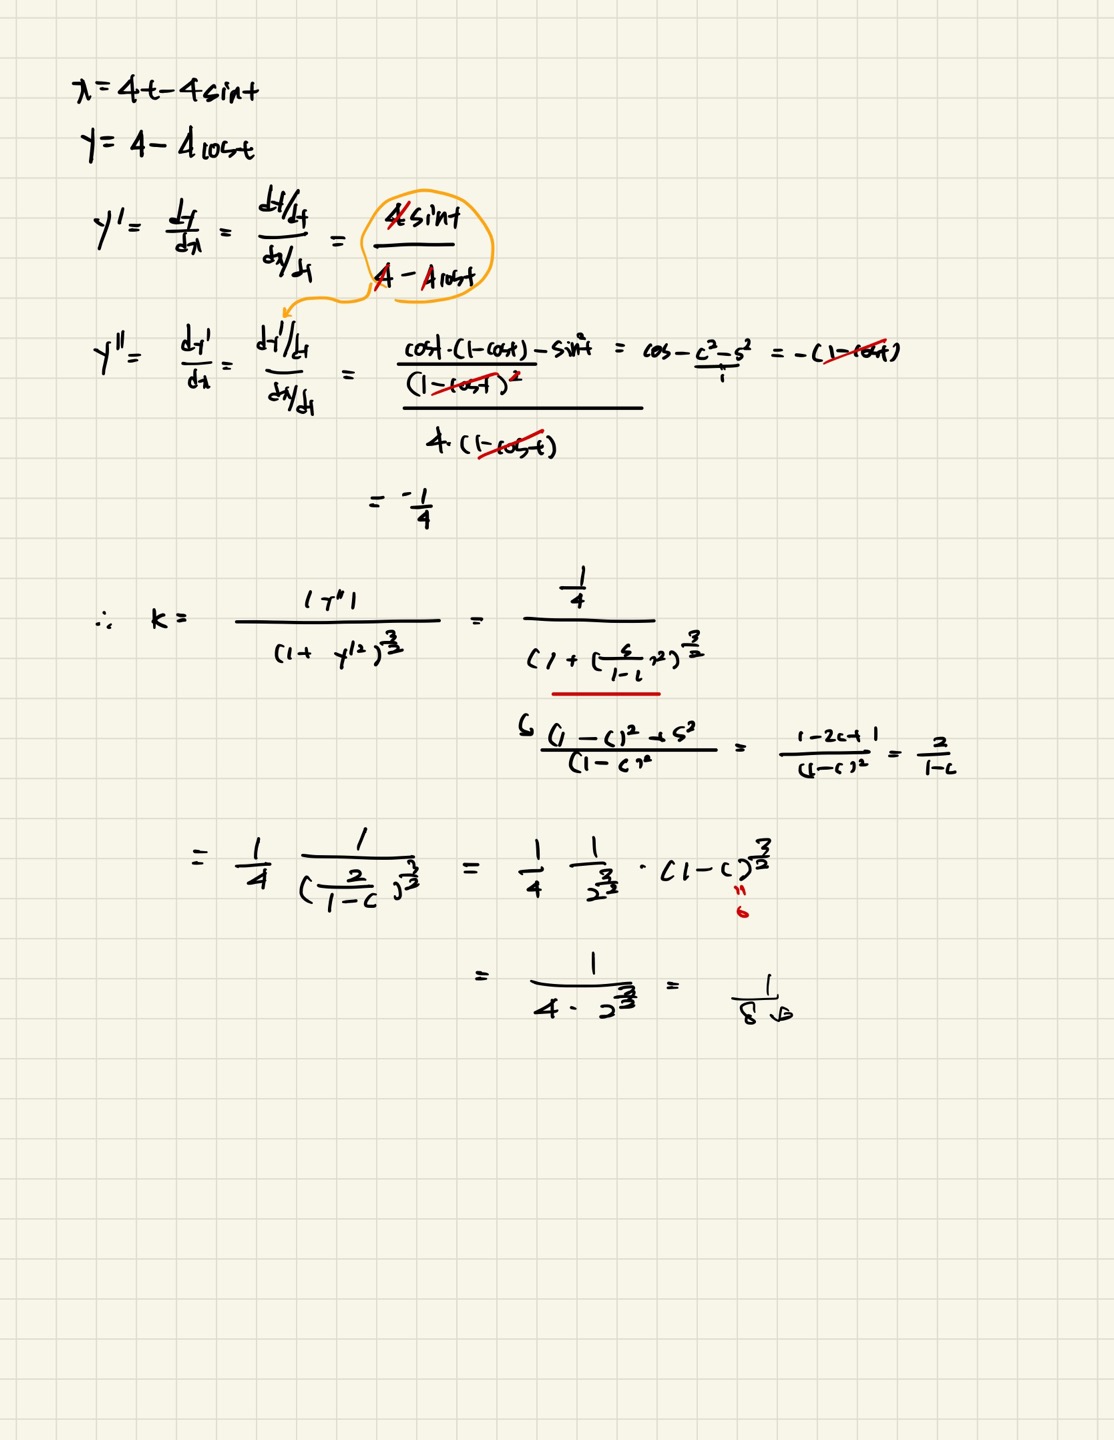 x = 4t - 4sint
y = 4 - 4cost
y' = dy/dx = (dy/dt)/(dx/dt) = 4sint/(4 - 4cost)
y'' = dy'/dx = (dy'/dt)/(dx/dt) = ((cost·(1-cost) - sin²t)/(1-cost)²)/(4·(1-cost)) = cos - c² - s² = -(1-cost)
1
= -1/4
∴ k = |y''|/(1 + y'²)^(3/2) = (1/4)/(1 + (s/(1-c))²)^(3/2)
((1-c)² + s²)/(1-c)² = (1-2c+1)/(1-c)² = 2/(1-c)
= 1/4 1/(2/(1-c))^(3/2) = 1/4 1/2^(3/2) · (1-c)^(3/2)
= 1/(4·2^(3/2)) = 1/(8√2)